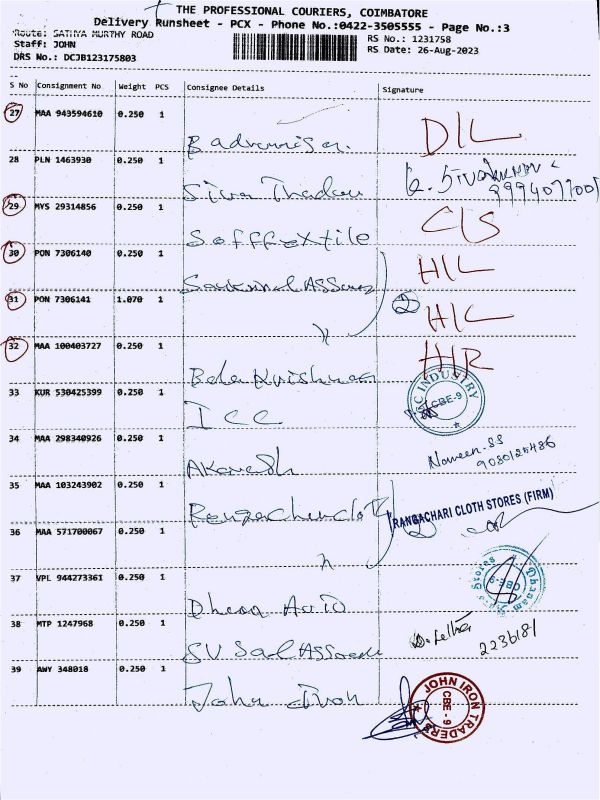 THE PROFESSIONAL COURIERS, COIMBATORE
Delivery Runsheet - PCX - Phone No.:0422-3505555 - Page No.:3
Route: SATHYA MURTHY ROAD
RS No.: 1231758
Staff: JOHN
RS Date: 26-Aug-2023
DRS No.: DCJB123175803
S No Consignment No Weight PCS Consignee Details Signature
27 MAA 943594610 0.250 1
D/L
28 PLN 1463930 0.250 1
Siva
29 MYS 29314856 0.250 1
C/S
30 PON 7306140 0.250 1
H/L
31 PON 7306141 1.070 1
H/L
32 MAA 100403727 0.250 1
Bala Krishnan H/R
33 KUR 530425399 0.250 1
ICC INDUSTRY CBE-9
34 MAA 298340926 0.250 1
Akarash Naveen.SS
9080125486
35 MAA 103243902 0.250 1
RANGACHARI CLOTH STORES (FIRM)
36 MAA 571700067 0.250 1
37 VPL 944273361 0.250 1
Stores Dhanam
38 MTP 1247968 0.250 1
SV
2236181
39 AWY 348018 0.250 1
John JOHN IRON TRADERS CBE - 9